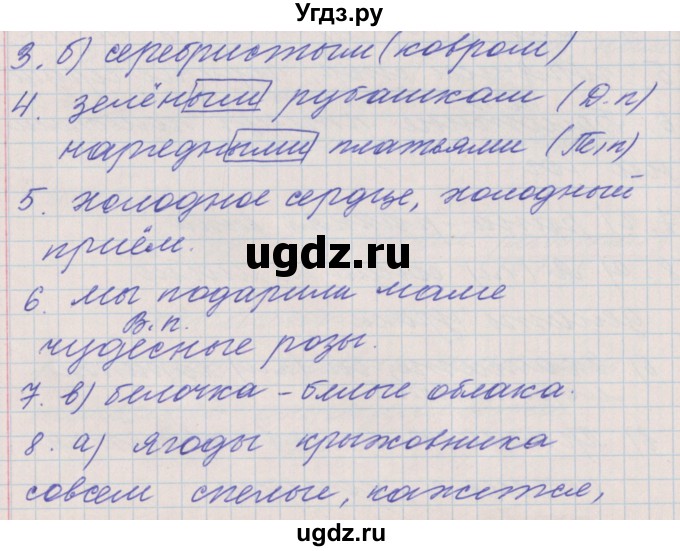 Угдз.ру
3. б) серебристым (ковром)
4. зелёным рубашкам (Д.п)
нарядными платьями (Т.п)
5. холодное сердце, холодный
приём.
ugdz.ru
6. мы подарили маме
В.п.
чудесные розы.
7. в) белочка - белые облака.
8. а) ягоды крыжовника
совсем спелые, кажется,
ugdz.ru